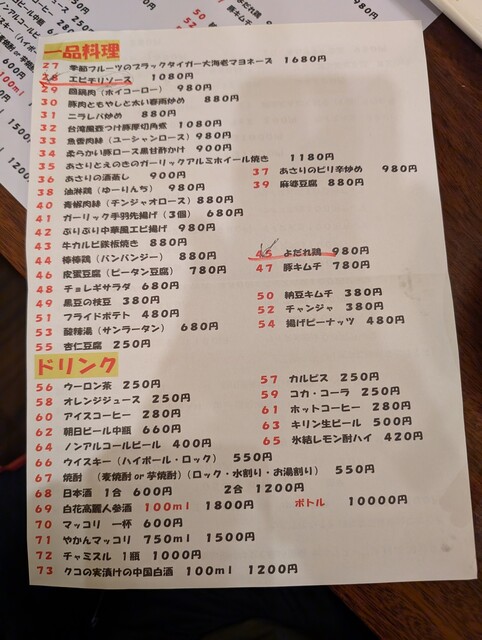 一品料理
27 季節フルーツのブラックタイガー大海老マヨネーズ 1680円
28 エビチリソース 1080円
29 回鍋肉(ホイコーロー) 980円
30 豚肉ともやしと太い春雨炒め 880円
31 ニラレバ炒め 880円
32 台湾風壺つけ豚厚切角煮 1080円
33 魚香肉絲(ユーシャンロース) 980円
34 柔らかい豚ロース黒甘酢かけ 900円
35 あさりとえのきのガーリックアルミホイール焼き 1180円
36 あさりの酒蒸し 900円 37 あさりのピリ辛炒め 980円
38 油淋鶏(ゆーりんち) 980円 39 麻婆豆腐 880円
40 青椒肉絲(チンジャオロース) 880円
41 ガーリック手羽先揚げ(3個) 680円
42 ぷりぷり中華風エビ揚げ 980円
43 牛カルビ鉄板焼き 880円
44 棒棒鶏(バンバンジー) 880円 45 よだれ鶏 980円
46 皮蛋豆腐(ピータン豆腐) 780円 47 豚キムチ 780円
48 チョレギサラダ 680円
49 黒豆の枝豆 380円 50 納豆キムチ 380円
51 フライドポテト 480円 52 チャンジャ 380円
53 酸辣湯(サンラータン) 680円 54 揚げピーナッツ 480円
55 杏仁豆腐 250円
ドリンク
56 ウーロン茶 250円 57 カルピス 250円
58 オレンジジュース 250円 59 コカ・コーラ 250円
60 アイスコーヒー 280円 61 ホットコーヒー 280円
62 朝日ビール中瓶 660円 63 キリン生ビール 500円
64 ノンアルコールビール 400円 65 氷結レモン酎ハイ 420円
66 ウイスキー(ハイボール・ロック) 550円
67 焼酎 (麦焼酎or芋焼酎)(ロック・水割り・お湯割り) 550円
68 日本酒 1合 600円 2合 1200円
69 白花高麗人参酒 100ml 1800円 ボトル 10000円
70 マッコリ 一杯 600円
71 やかんマッコリ 750ml 1500円
72 チャミスル 1瓶 1000円
73 クコの実漬けの中国白酒 100ml 1200円